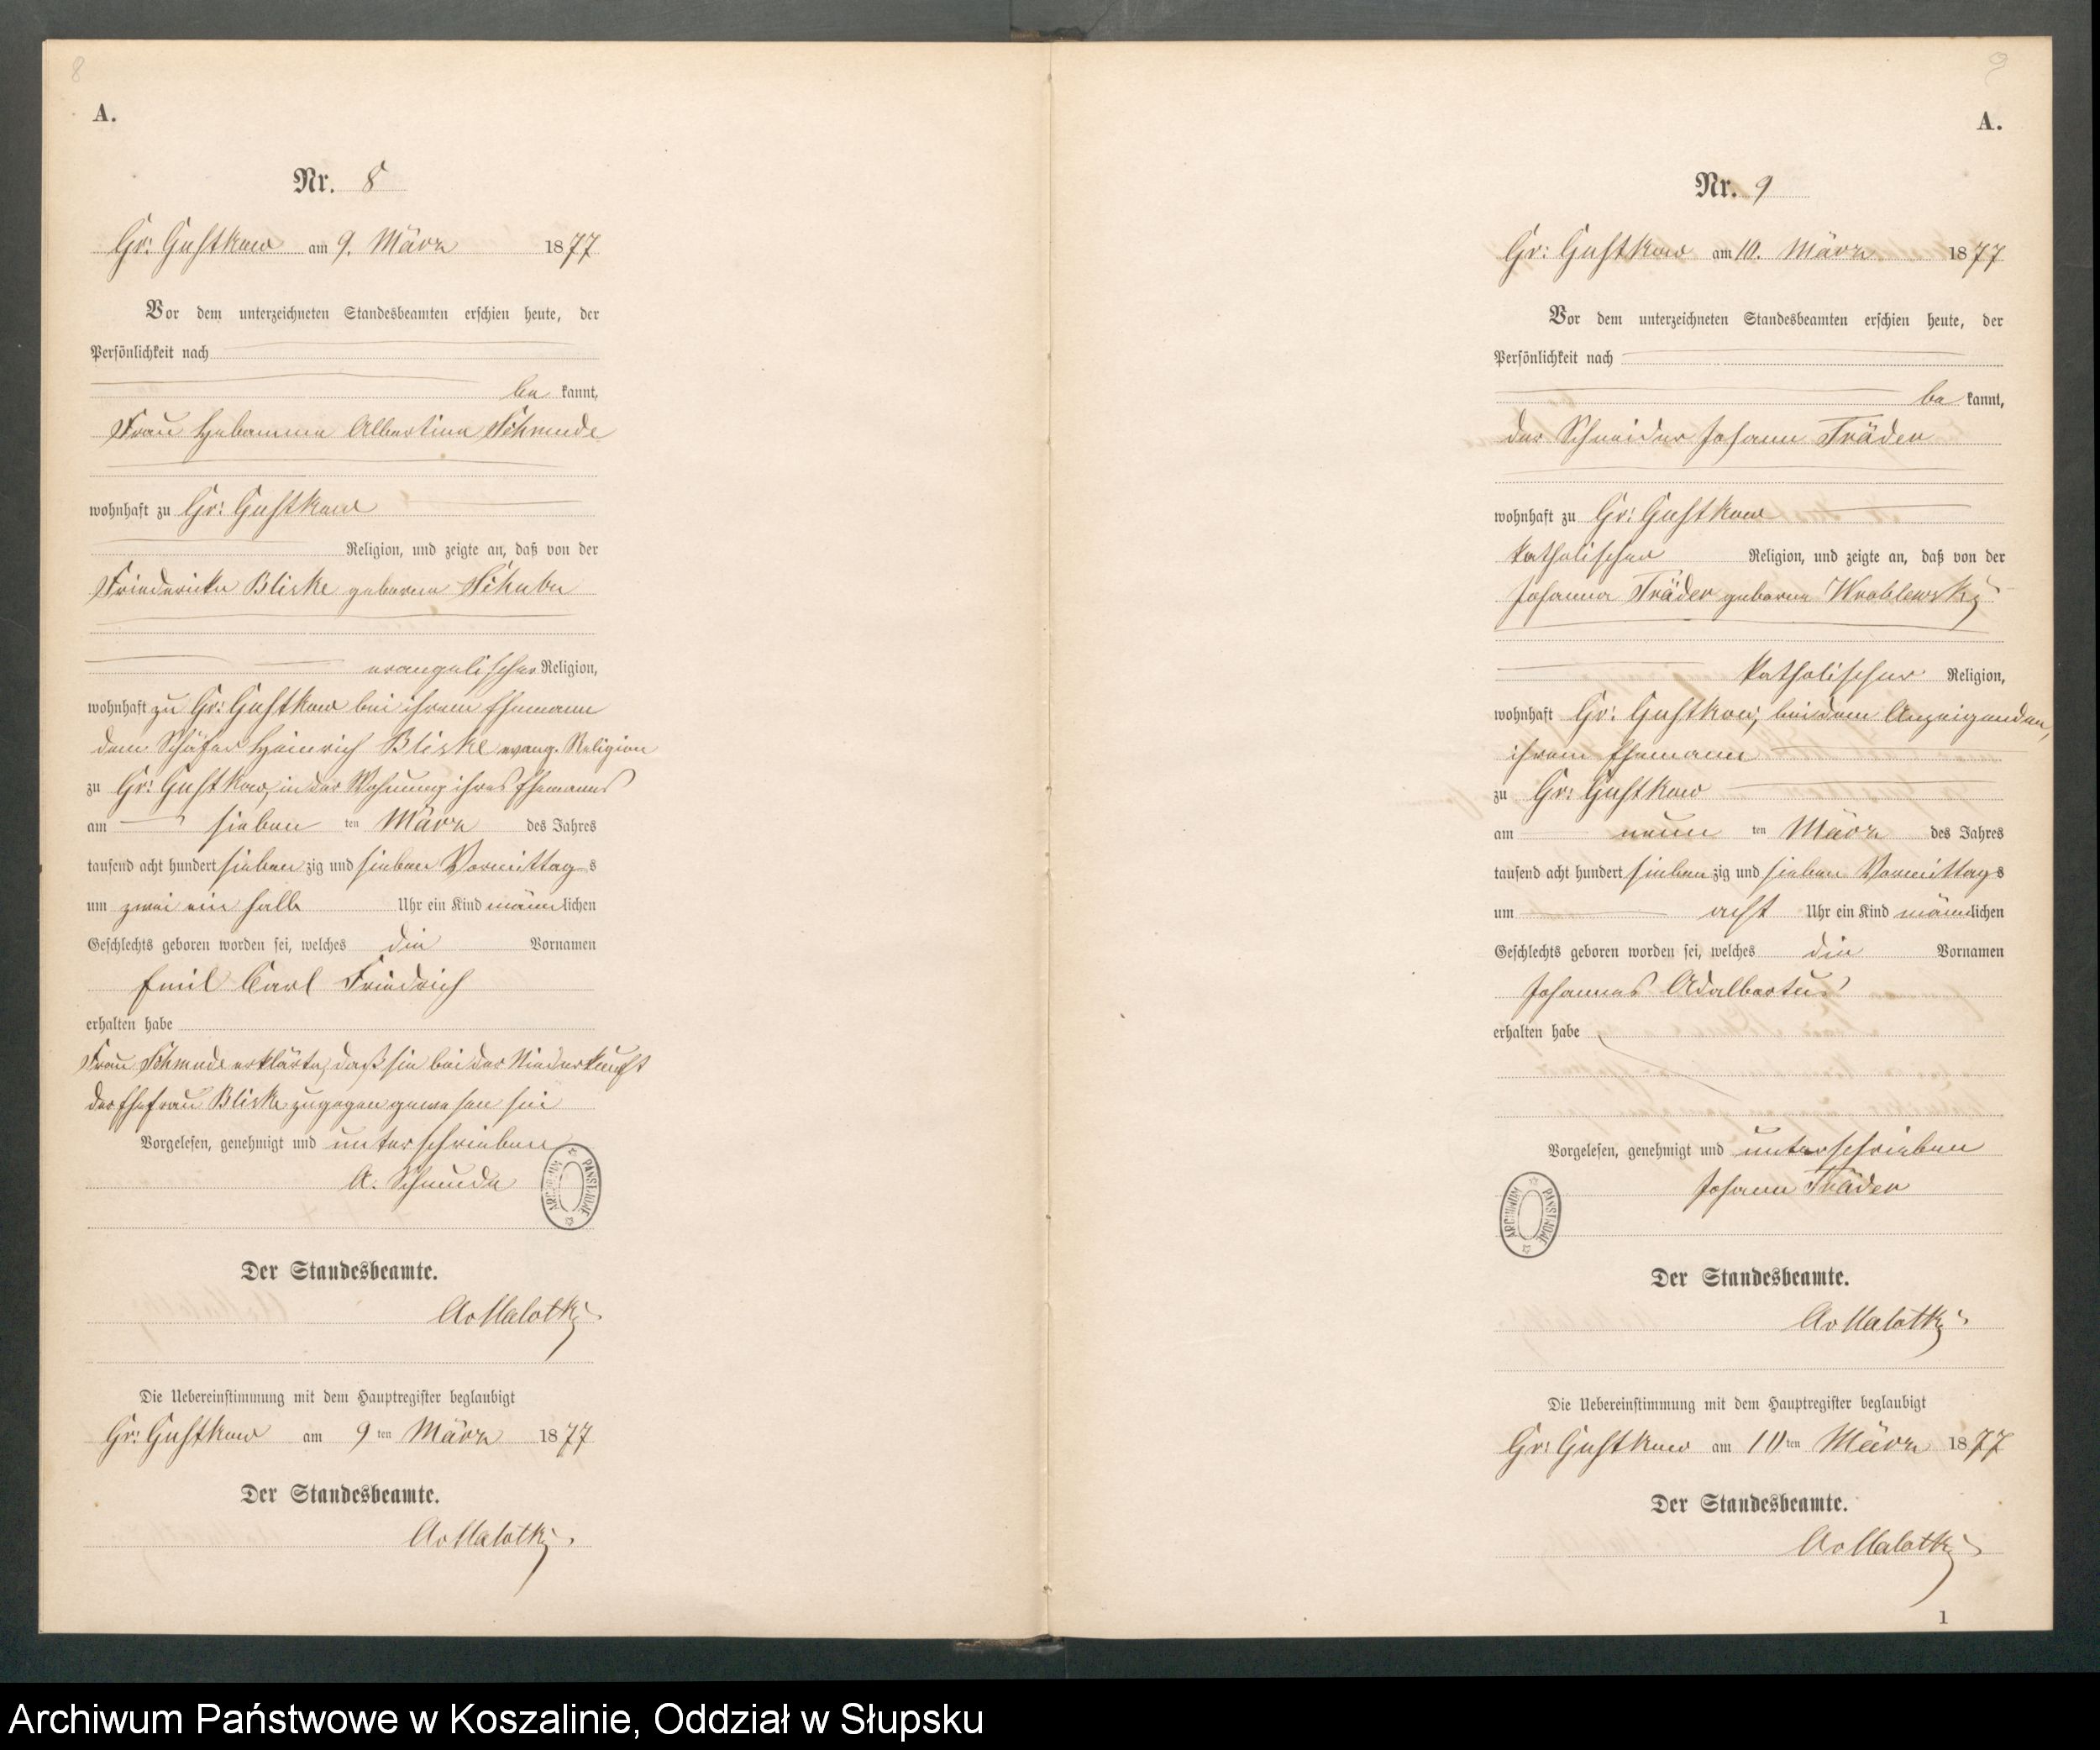 8
A.
Nr. 8
Gr: Gustkow am 9. März 1877
Vor dem unterzeichneten Standesbeamten erschien heute, der
Persönlichkeit nach
be kannt,
Frau Hebamme Albertine Schmude
wohnhaft zu Gr: Gustkow
Religion, und zeigte an, daß von der
Friedericke Bliske geborene
evangelischer Religion,
wohnhaft zu Gr: Gustkow bei ihrem Ehemann
dem Schäfer Heinrich Bliske evang. Religion
zu Gr: Gustkow, in der Wohnung ihres Ehemanns
am sieben ten März des Jahres
tausend acht hundert sieben zig und sieben Vormittags
um zwei ein halb Uhr ein Kind männlichen
Geschlechts geboren worden sei, welches die Vornamen
Emil Carl Friedrich
erhalten habe
Frau Schmude erklärte, daß sie bei der Niederkunft
der Ehefrau Bliske zugegen gewesen sei
Vorgelesen, genehmigt und unterschrieben
A. Schmude
ARCHIWUM PAŃSTWOWE
Der Standesbeamte.
AvMalotki
Die Uebereinstimmung mit dem Hauptregister beglaubigt
Gr: Gustkow am 9ten März 1877
Der Standesbeamte.
AvMalotki
9
A.
Nr. 9
Gr: Gustkow am 10. März 1877
Vor dem unterzeichneten Standesbeamten erschien heute, der
Persönlichkeit nach
be kannt,
der Schneider Johann Träder
wohnhaft zu Gr: Gustkow
katholischer Religion, und zeigte an, daß von der
Johanna Träder geborene Wroblewsky
katholischer Religion,
wohnhaft Gr: Gustkow, bei dem Anzeigenden,
ihrem Ehemann
zu Gr: Gustkow
am neun ten März des Jahres
tausend acht hundert sieben zig und sieben Vormittags
um acht Uhr ein Kind männlichen
Geschlechts geboren worden sei, welches die Vornamen
Johannes Adalbertus
erhalten habe
Vorgelesen, genehmigt und unterschrieben
Johann Träder
ARCHIWUM PAŃSTWOWE
Der Standesbeamte.
AvMalotki
Die Uebereinstimmung mit dem Hauptregister beglaubigt
Gr: Gustkow am 10ten März 1877
Der Standesbeamte.
AvMalotki
1
Archiwum Państwowe w Koszalinie, Oddział w Słupsku